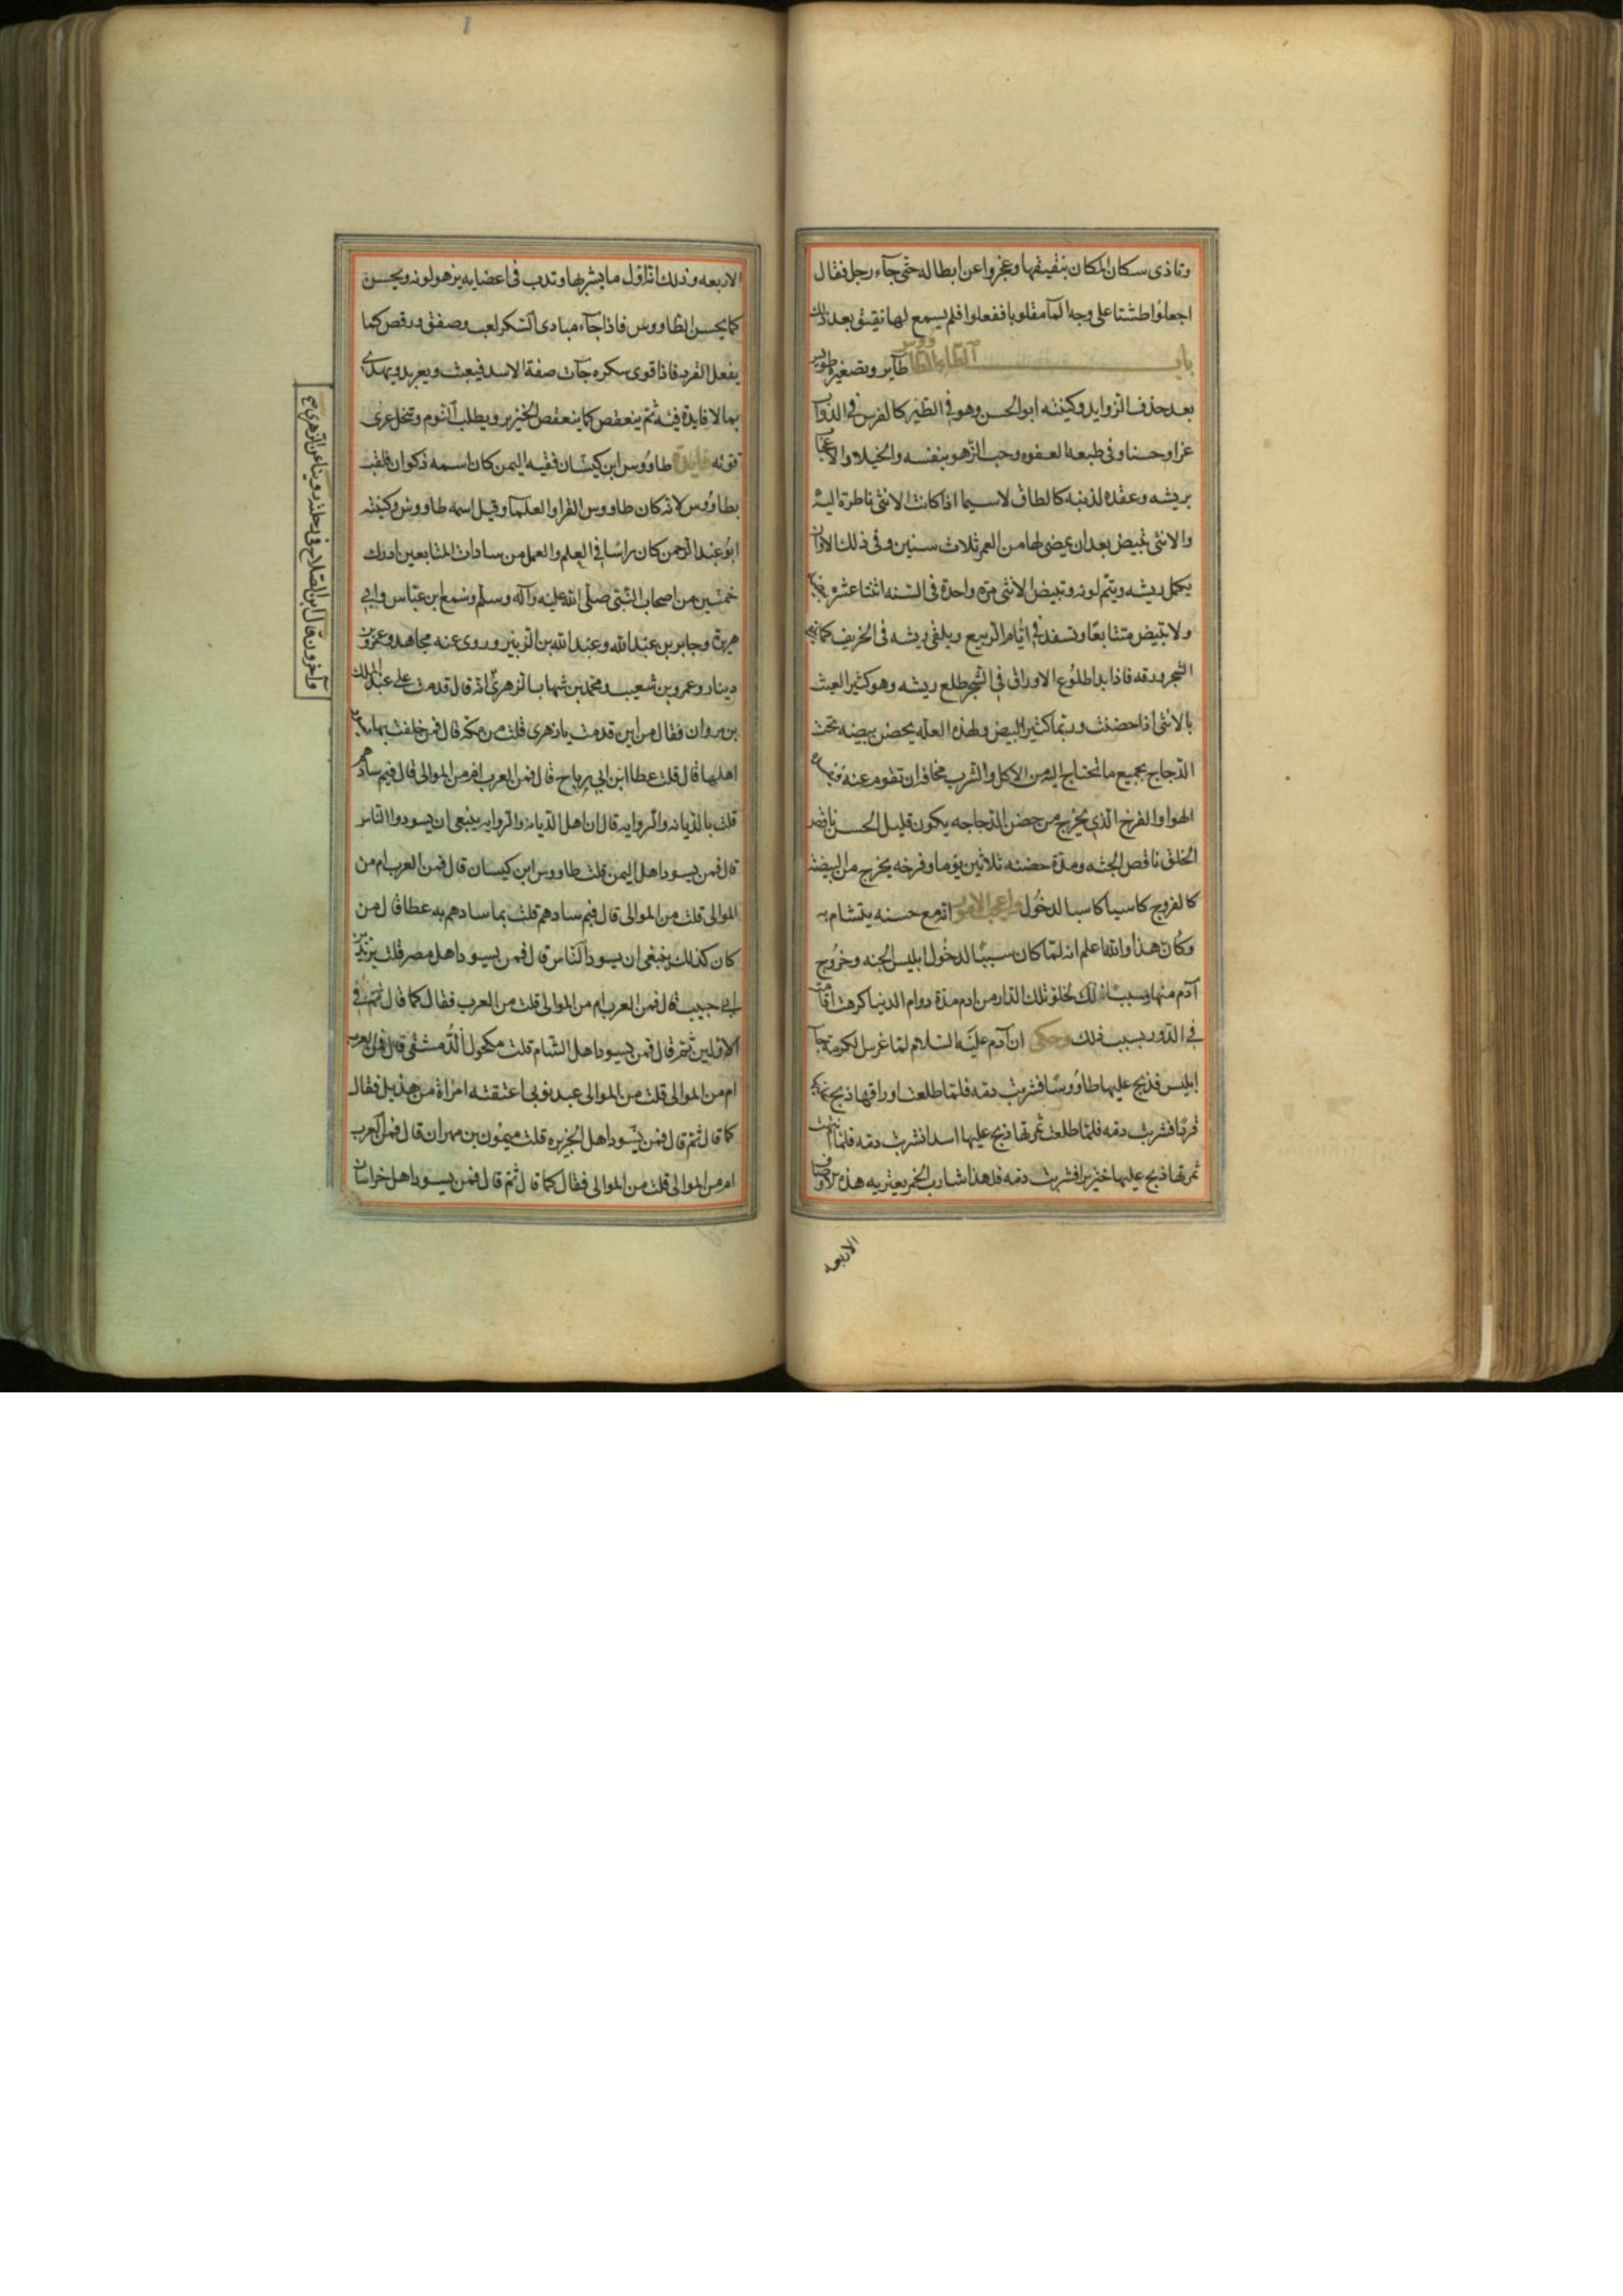 وتاذى سكان المكان بنقيقها وعجزوا عن ابطاله حتى جآء رجل فقال
اجعلوا طشتا على وجه المآ مقلوبا ففعلوا فلم يسمع لها نقيق بعد ذلك
باب الطاء الطاووس طآير وتصغيره طويس
بعد حذف الزوايد وكنيته ابو الحسن وهو في الطير كالفرس في الدواب
عزا وحسنا وفي طبعه العفوه وحب الزهو بنفسه والخيلا والاعجاب
بريشه وعقده لذنبه كالطاق لاسيما اذا كانت الانثى ناظرة اليه
والانثى تبيض بعد ان يمضى لها من العمر ثلاث سنين وفى ذلك الاوان
يكمل ريشه ويتم لونه وتبيض الانثى مرة واحدة فى السنه اثنتا عشره
ولا تبيض متتابعا وتسفد في ايام الربيع ويلقى ريشه فى الخريف كما
الشجر ورقه فاذا بدا طلوع الاوراق في الشجر طلع ريشه وهو كثير العبث
بالانثى اذا حضنت وربما كثير البيض ولهذه العله يحضن بيضه تحت
الدجاج بجميع ما تحتاج اليه من الاكل والشرب مخافة ان تقوم عنه
الهوا والفرخ الذي يخرج من حضن الدجاجه يكون قليل الحسن ناقص
الخلق ناقص الجثه ومدة حضنه ثلاثين يوما وفرخه يخرج من البيضة
كالفروج كاسيا كاسبا لدخول واعجب الامور انه مع حسنه يتشام به
وكان هذا والله اعلم انه لما كان سببا لدخول ابليس الجنه وخروج
آدم منها وسببا لذلك لخلو تلك الدار من ادم مدة دوام الدنيا كرهت اقامته
في الدور بسبب ذلك وحكى ان آدم عليه السلام لما غرس الكرمة جآ
ابليس فذبح عليها طاووسا فشربت دمه فلما طلعت اوراقها ذبح
قردا فشربت دمه فلما طلعت ثمرتها ذبح عليها اسدا فشربت دمه فلما انتهت
ثمرتها ذبح عليها خنزيرا فشربت دمه فلهذا شارب الخمر يعتريه هذه الاوصاف
الاربعه
الاربعه وذلك انه اول ما يشربها وتدب فى اعضايه يزهو لونه ويحسن
كما يحسن الطاووس فاذا جآء مبادى السكر لعب وصفق ورقص كما
يفعل القرد فاذا قوى سكره جآت صفة الاسد فيعبث ويعربد ويهذى
بما لا فايدة فيه ثم ينعقص كما ينعقص الخنزير ويطلب النوم وتنحل عرى
قوته فايدة طاووس ابن كيسان فقيه اليمن كان اسمه ذكوان فلقب
بطاووس لانه كان طاووس القرا والعلمآ وقيل اسمه طاووس وكنيته
ابو عبد الرحمن كان راسا في العلم والعمل من سادات التابعين ادرك
خمسين من اصحاب النبي صلى الله عليه وآله وسلم وسمع ابن عباس وابي
هريرة وجابر بن عبد الله وعبد الله بن الزبير وروى عنه مجاهد وعمرو بن
دينار وعمرو بن شعيب ومحمد بن شهاب الزهري انه قال قدمت على عبد الملك
بن مروان فقال من اين قدمت يا زهرى قلت من مكه قال فمن خلفت بها
اهلها قال قلت عطا ابن ابي رباح قال فمن العرب ام من الموالى قال فبم سادهم
قلت بالديانه والروايه قال ان اهل الديانه والروايه ينبغى ان يسودوا الناس
قال فمن يسود اهل اليمن قلت طاووس ابن كيسان قال فمن العرب ام من
الموالى قلت من الموالى قال فبم سادهم قلت بما سادهم به عطا قال من
كان كذلك ينبغى ان يسود الناس قال فمن يسود اهل مصر قلت يزيد بن
ابي حبيب قال فمن العرب ام من الموالى قلت من العرب فقال كما قال ثم في
الاولين ثم قال فمن يسود اهل الشام قلت مكحول الدمشقى قال فمن العرب
ام من الموالى قلت من الموالى عبد نوبى اعتقته امراة من هذيل فقال
كما قال ثم قال فمن يسود اهل الجزيره قلت ميمون بن مهران قال فمن العرب
ام من الموالى قلت من الموالى فقال كما قال ثم قال فمن يسود اهل خراسان
وآخرون قال ابن الصلاح فى رحلته روينا عن الزهرى صح